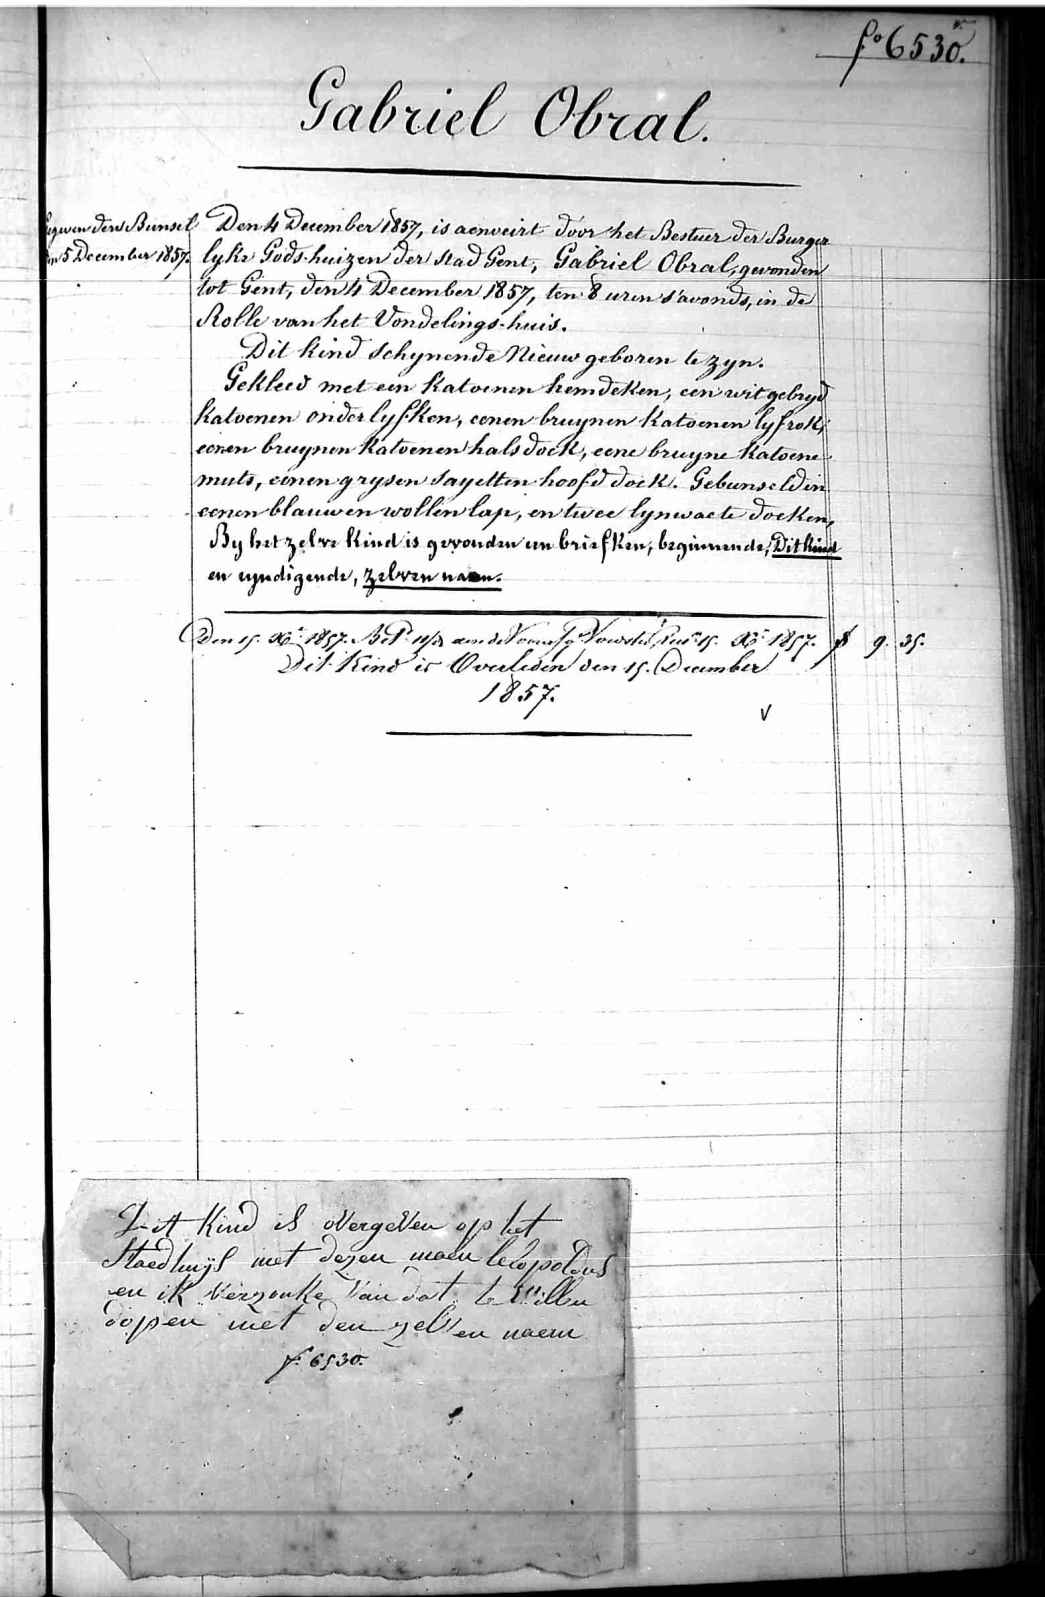 fo 6530.
Gabriel Obral.
gegeven den Bunsel
den 5 December 1857.
Den 4 December 1857, is aenveirt door het Bestuer der Burger
lyke Gods-huizen der stad Gent, Gabriel Obral, gevonden
tot Gent, den 4 December 1857, ten 8 uren s'avonds, in de
Rolle van het Vondelings-huis.
Dit kind schynende Nieuw geboren te zyn.
Gekleed met een katoenen hemdeken, een wit gebryd
katoenen onderlyfken, eenen bruynen katoenen lyfrok,
eenen bruynen katoenen halsdoek, eene bruyne katoene
muts, eenen grysen sayetten hoofd doek. Gebunseld in
eenen blauwen wollen lap, en twee lynwaete doeken,
By het zelve kind is gevonden een briefken, beginnende, Dit kind
en eyndigende, zelven naem.
Den 15. Xr. 1857. aen de 15. Xr. 1857. f 9. 35.
Dit Kind is Overleden den 15. December
1857.
Dit Kind is overgeven op het
Staedhuijs met dezen naem leopoldus
en ik verzouke van dat te willen
dopen met den zelven naem
fo 6530.